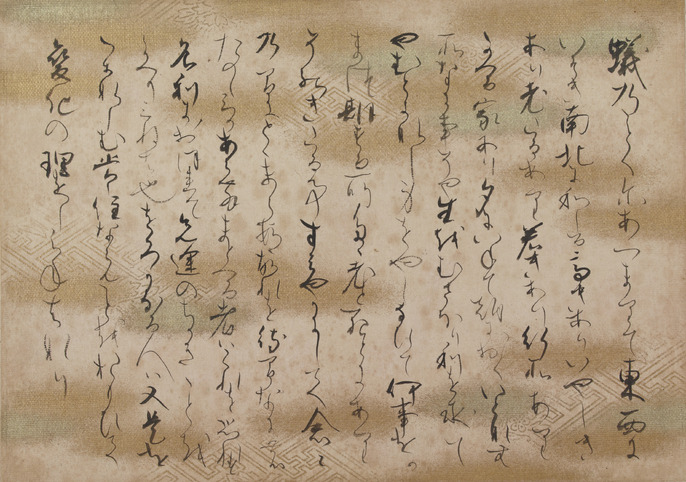 蟻のことくにあつまりて東西に
いそき南北にわしる高きありいやしき
あり老たるあり若きあり行所あり
かへる家あり夕にいねて朝におくいとなむ
所なに事そや生をむさほり利を求て
やむときなし身をやしなひて何事をか
まつ期する所たゝ老と死とにあり
そのきたる事すみやかにして念々
の間にとゝまらす是を待間なにの
たのしひかあらむまとへる者はこれを恐す
名利におほれて先途のちかきことを
かへりみねはなりをろかなる人は又是を
かなしむ常住ならんことをおもひて
変化の理をしらねはなり